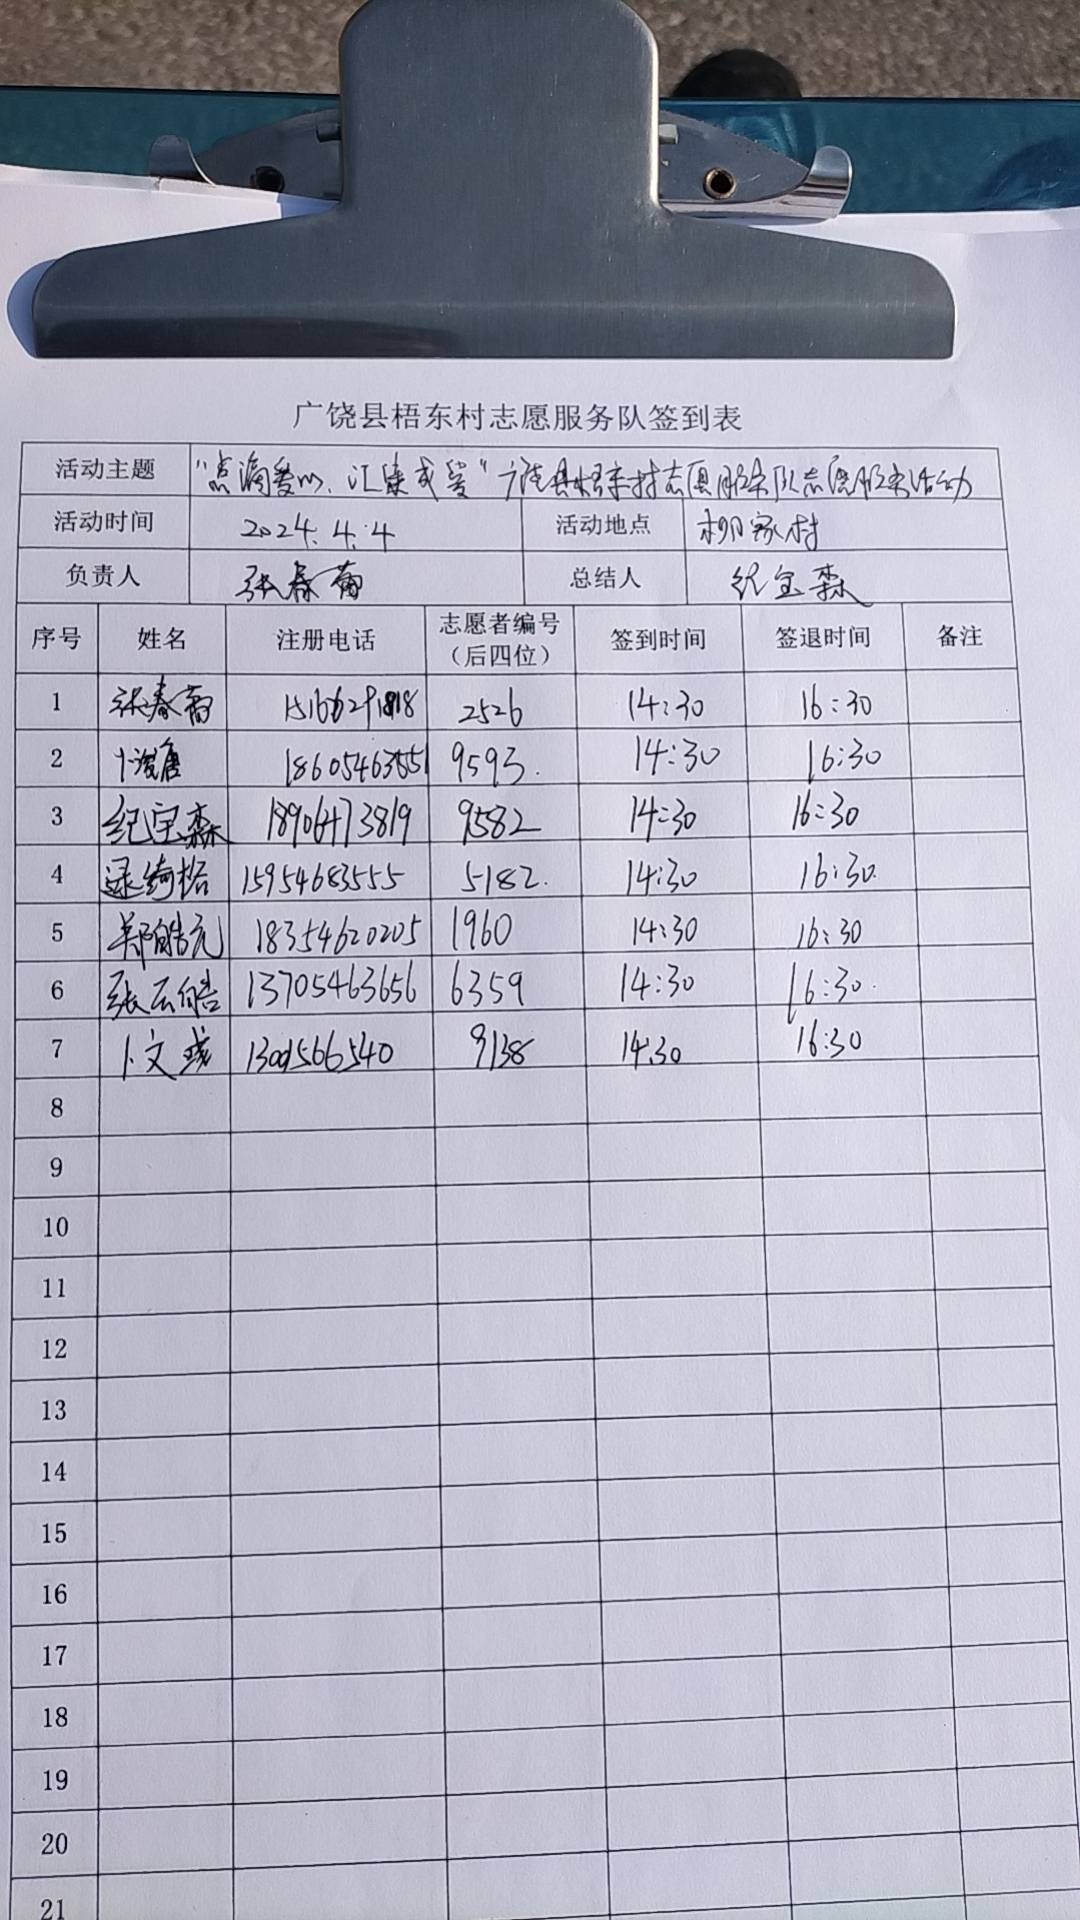 广饶县梧东村志愿服务队签到表
活动主题 "点滴爱心、汇集成爱"广饶县梧东村志愿服务队志愿服务活动
活动时间 2024.4.4 活动地点 柳家村
负责人 张春菊 总结人 纪宝森
序号 姓名 注册电话 志愿者编号（后四位） 签到时间 签退时间 备注
1 张春菊 2526 14:30 16:30
2 18605463551 9593. 14:30 16:30
3 纪宝森 18906473819 9582 14:30 16:30
4 15954683555 5182. 14:30 16:30.
5 郑皓元 18354620205 1960 14:30 16:30
6 张云皓 13705463656 6359 14:30 16:30.
7 卜文彧 13001566540 9138 14:30 16:30
8
9
10
11
12
13
14
15
16
17
18
19
20
21